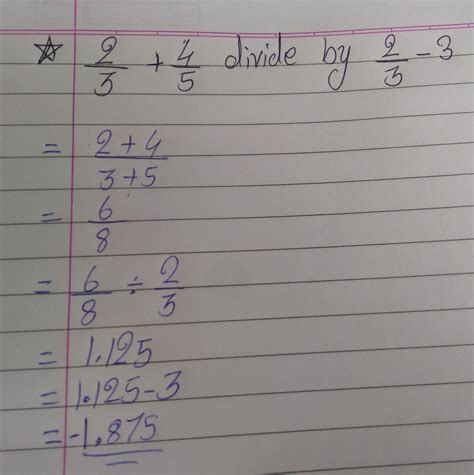 ☆ 2/3 + 4/5 divide by 2/3 - 3
= 2+4/3+5
= 6/8
= 6/8 ÷ 2/3
= 1.125
= 1.125-3
= -1.875